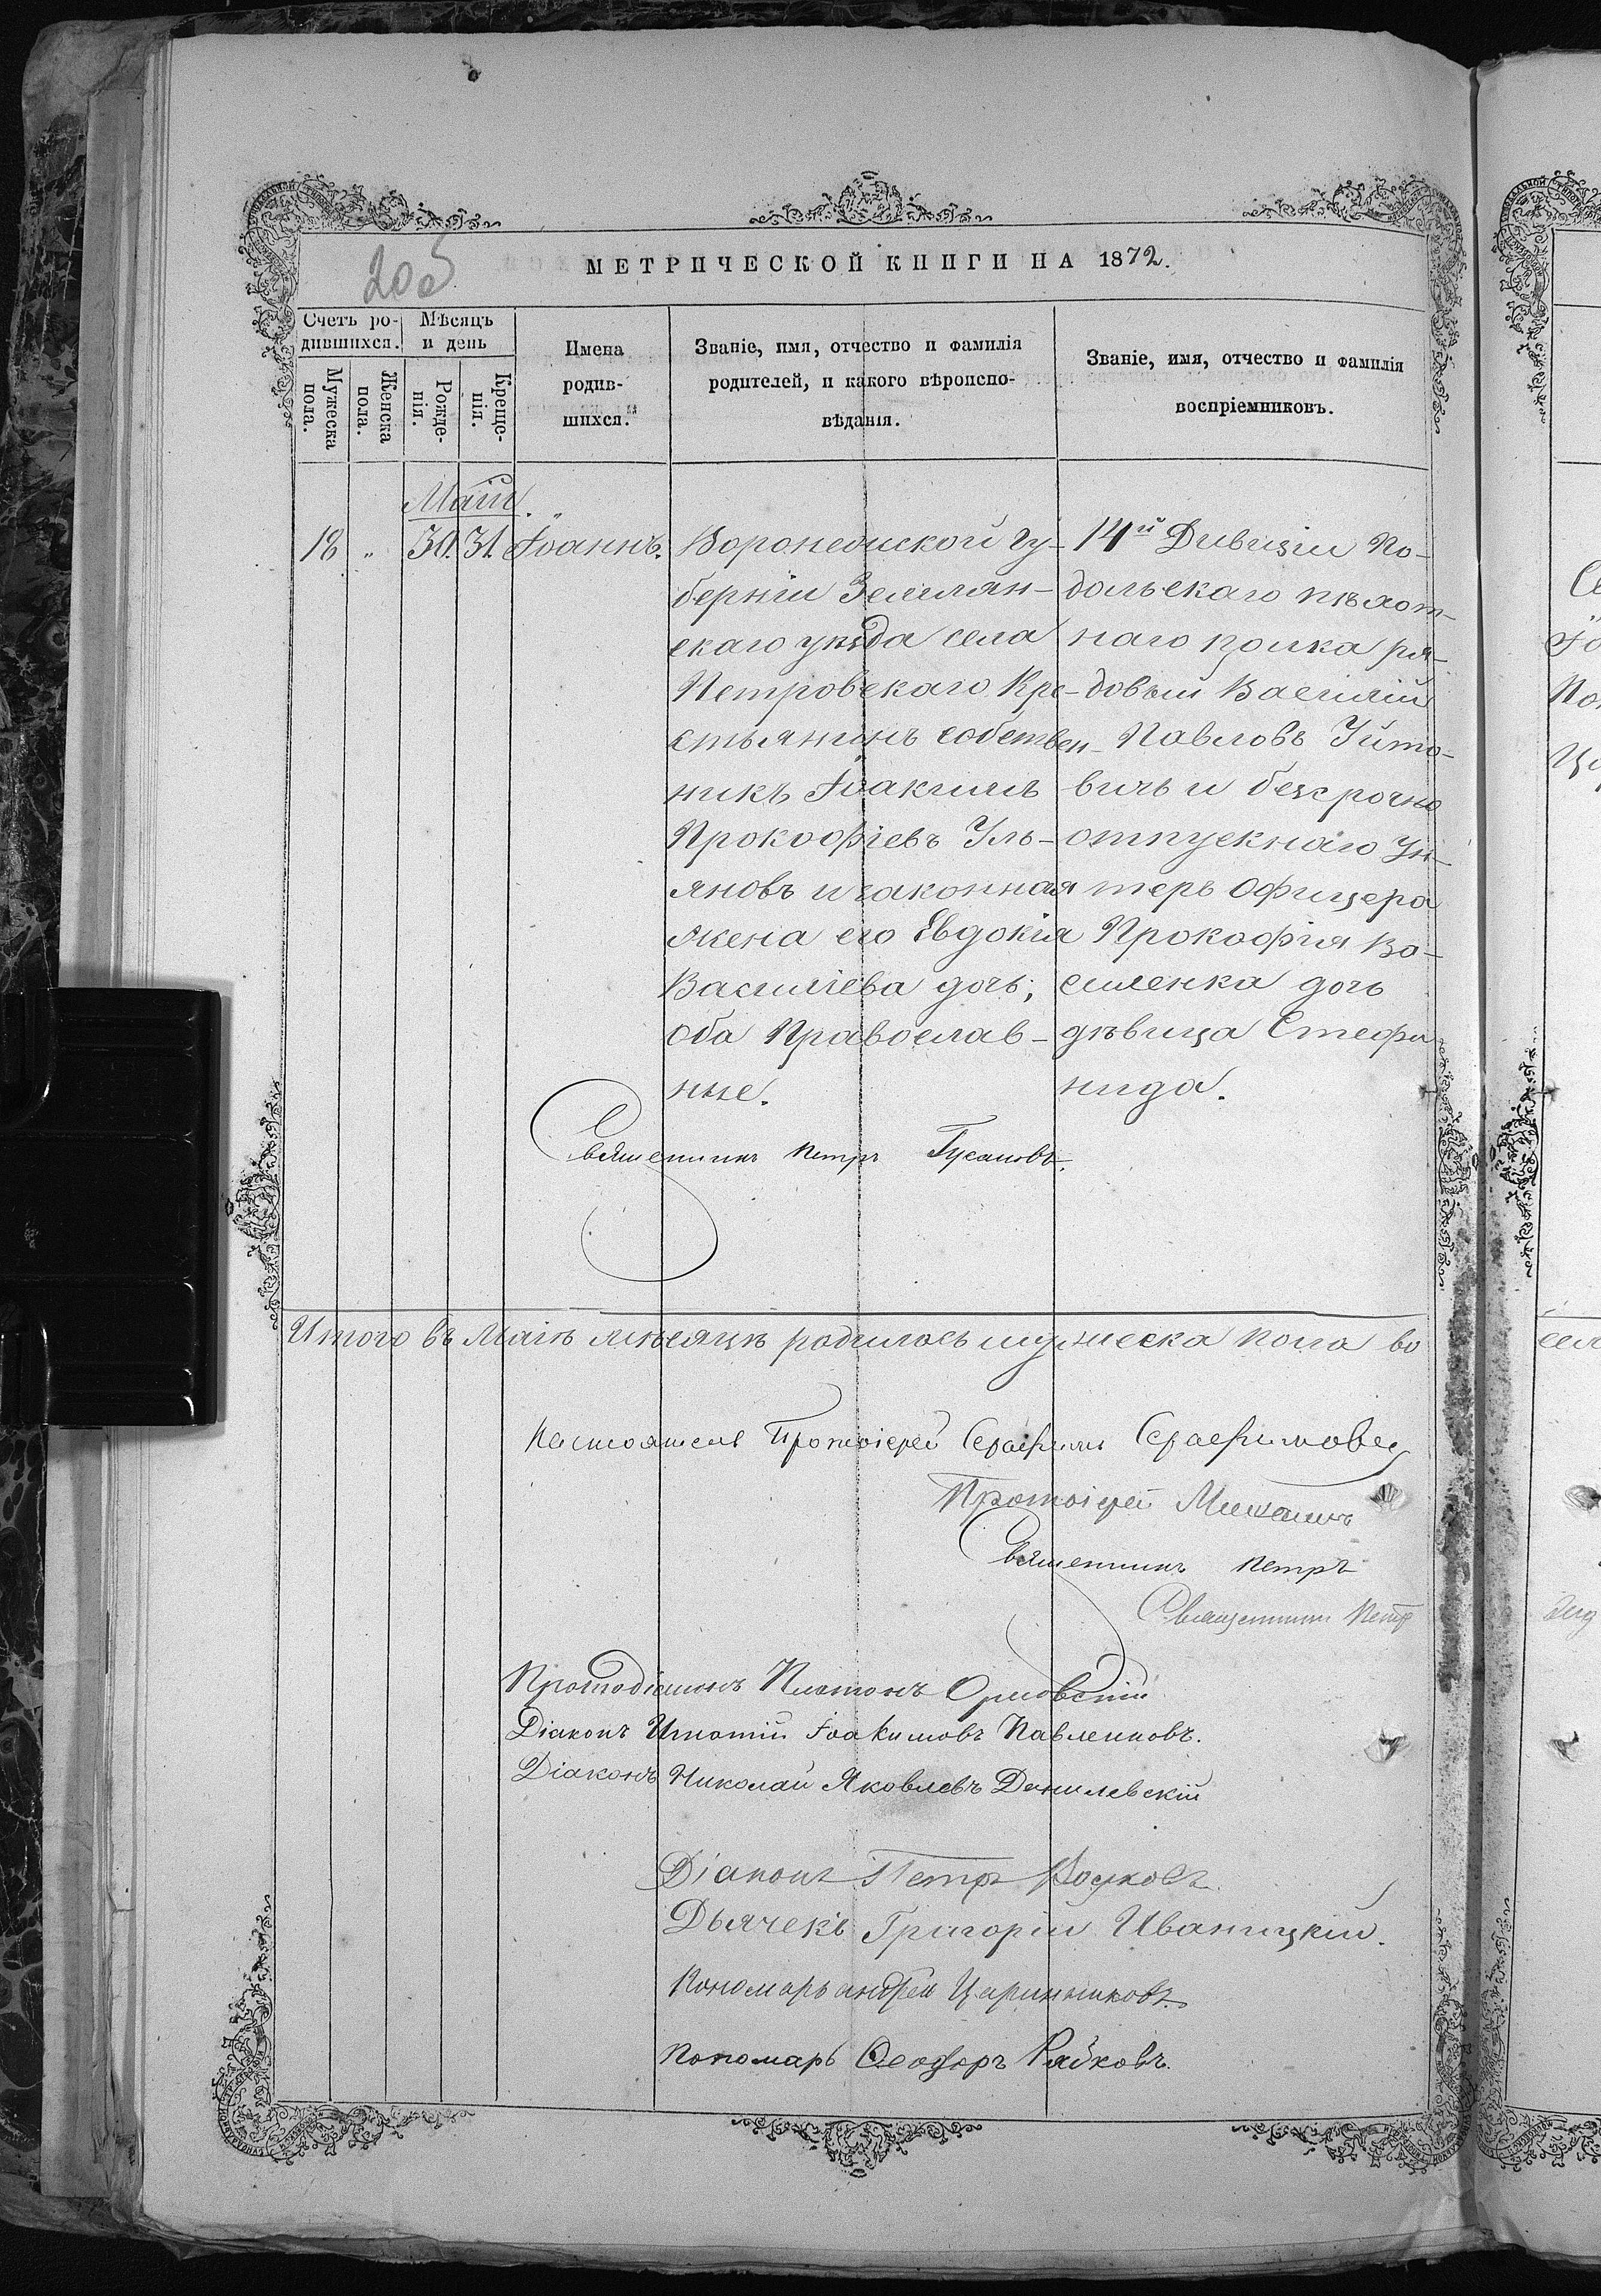 205
МЕТРИЧЕСКОЙ КНИГИ НА 1872.
Счетъ ро-
дившихся.
Мѣсяцъ
и день
Мужеска
пола.
Женска
пола.
Рожде-
нія.
Креще-
нія.
Имена
родив-
шихся.
Званіе, имя, отчество и фамилія
родителей, и какого вѣроиспо-
вѣданія.
Званіе, имя, отчество и фамилія
воспріемниковъ.
Маій.
18 " 30. 31. Іоаннъ.
Воронежской Гу-
берніи Землян-
скаго уѣзда села
Петровскаго Кре-
стьянинъ собствен-
никъ Іоакимъ
Прокофіевъ Уль-
яновъ и законная
жена его Евдокія
Василіева дочь;
Оба Православ-
ные.
14й Дивизіи По-
дольскаго пѣхот-
наго полка ря-
довый Василій
Павловъ
вичъ и безсрочно
отпускнаго Ун-
теръ Офицера
Прокофія Ва-
силенка дочь
дѣвица Стефа-
нида.
Священникъ Петръ Гусаковъ.
Итого въ Маіѣ мѣсяцѣ родилось мужеска пола во
Настоятель Протоіерей Серафимъ Серафимовъ
Протоіерей Михаилъ
Священникъ Петръ
Священникъ Петр
Протодіаконъ Платонъ Орловскій
Діаконъ Игнатій Іоакимовъ Павленковъ.
Діаконъ Николай Яковлевъ Данилевскій
Діаконъ Петръ
Дьячекъ Григорій Иваницкій.
Пономарь Андрей Царинниковъ.
Пономарь Ѳеодоръ Рябковъ.